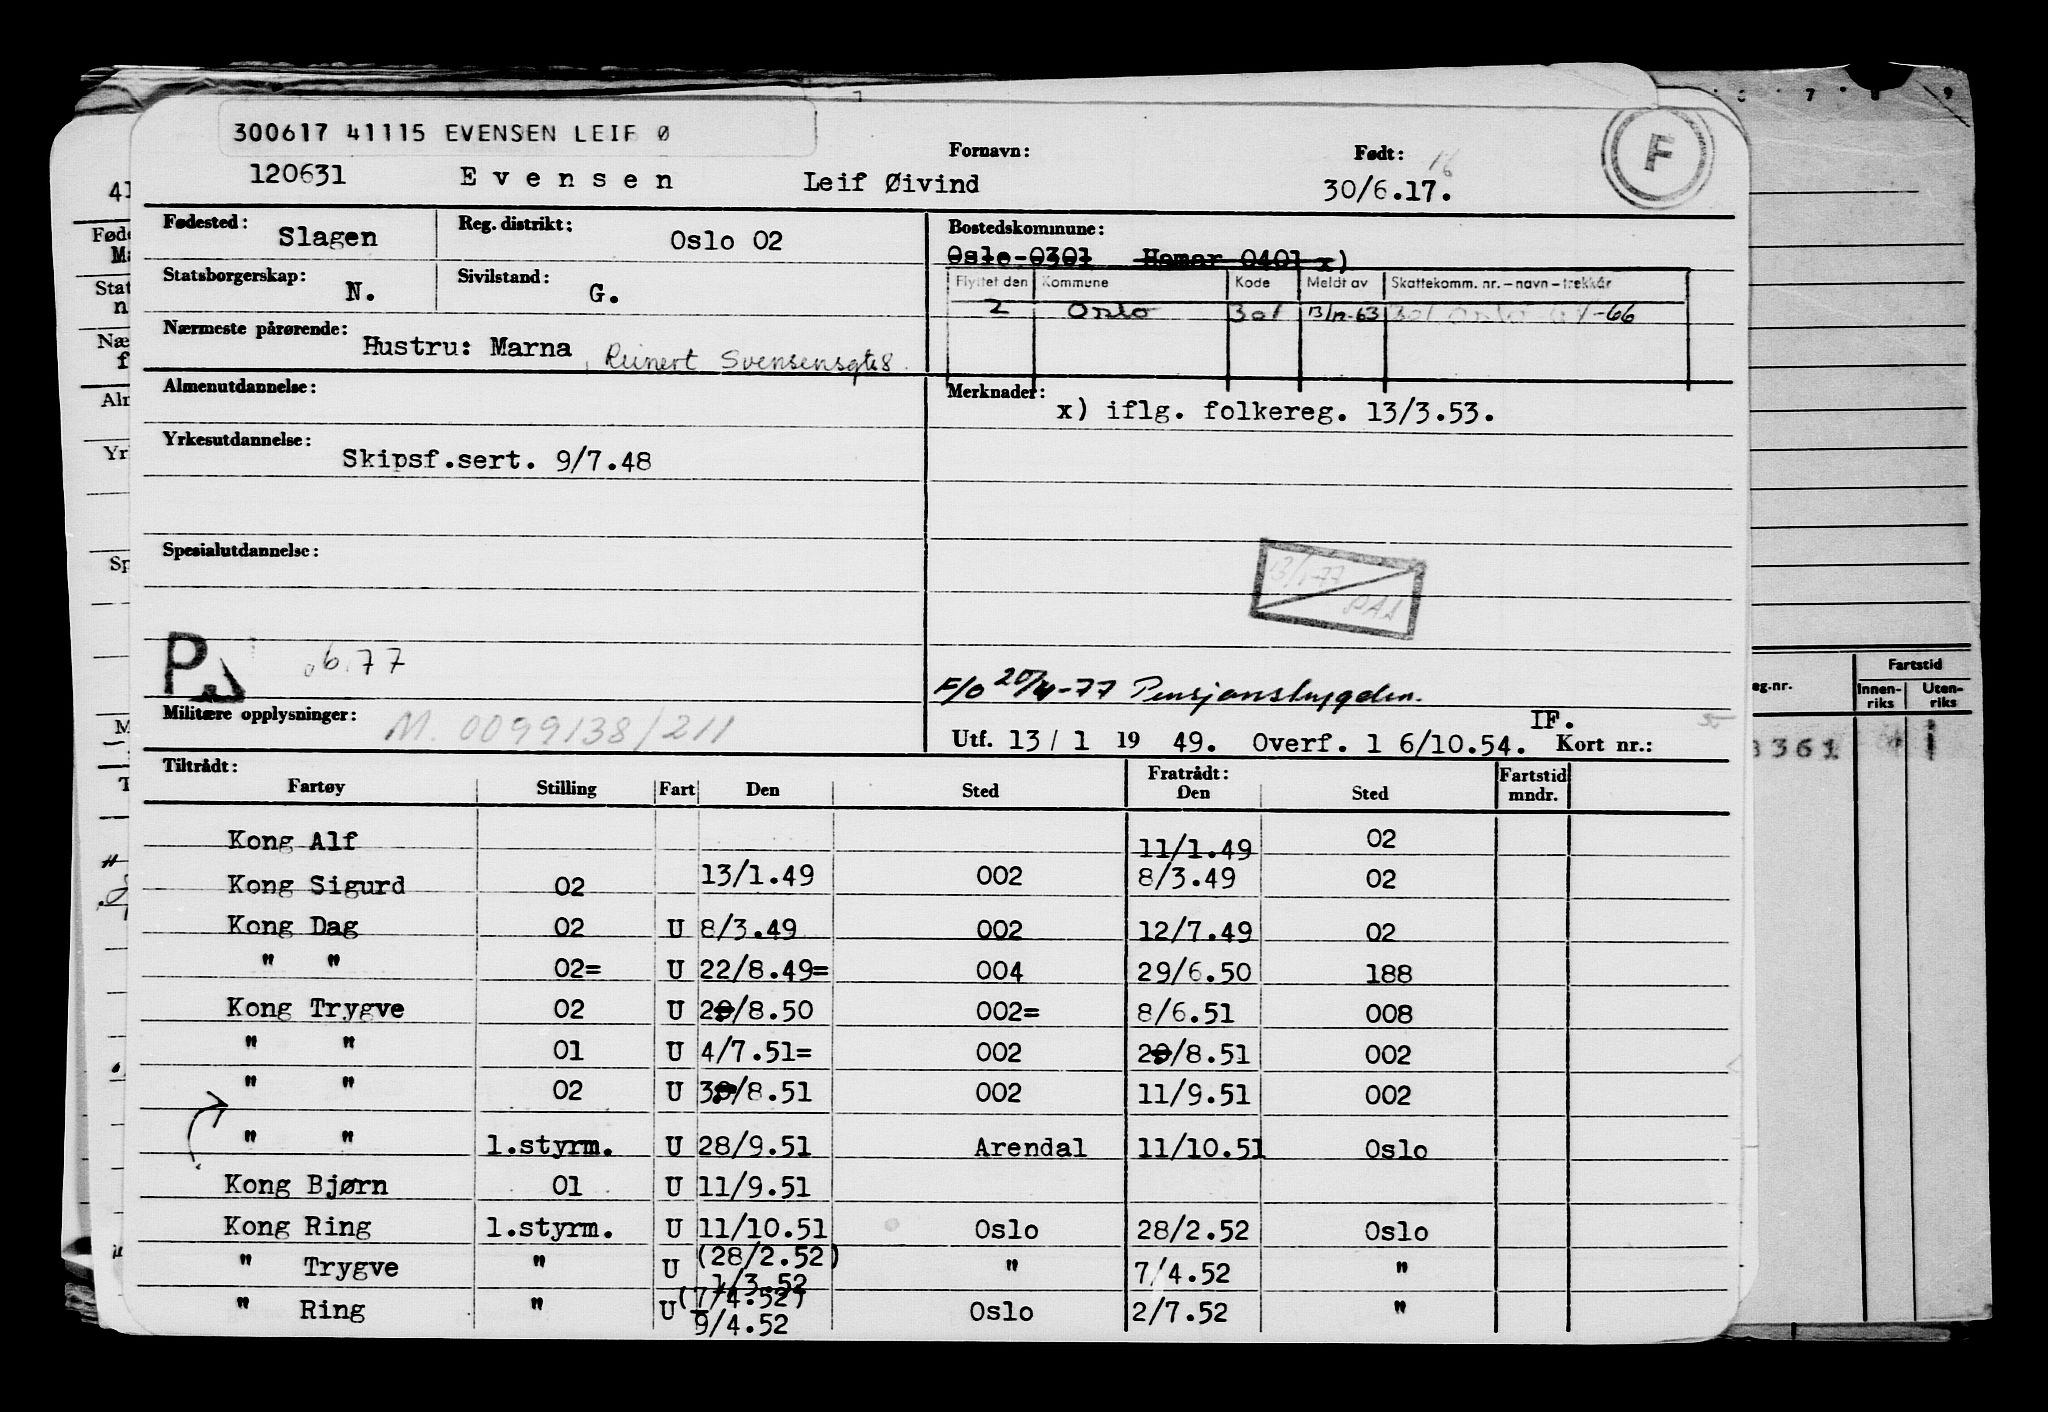 300617 41115 EVENSEN LEIF Ø
120631 Evensen Leif Øivind
Fornavn:
Født: 16
30/6.17.
F
Fødested: Slagen
Reg. distrikt: Oslo 02
Bostedskommune:
Oslo-0301 Hamar 0401 x)
Statsborgerskap: N.
Sivilstand: G.
Flyttet den Kommune Kode Meldt av Skattekomm. nr. – navn – trekkår
2 Oslo 301 13/12-63 301 Oslo -66
Nærmeste pårørende: Hustru: Marna
Reinert Svensensgt 8.
Almenutdannelse:
Merknader: x) iflg. folkereg. 13/3.53.
Yrkesutdannelse: Skipsf.sert. 9/7.48
Spesialutdannelse:
13/1-77
P 6.77
F/o 20/4-77 Pensjonstrygden.
Militære opplysninger: M. 0099138/211
IF.
Utf. 13/1 1949. Overf. 1 6/10.54. Kort nr.:
Tiltrådt: Fratrådt:
Fartøy Stilling Fart Den Sted Den Sted Fartstid mndr.
Kong Alf 11/1.49 02
Kong Sigurd 02 13/1.49 002 8/3.49 02
Kong Dag 02 U 8/3.49 002 12/7.49 02
" " 02= U 22/8.49= 004 29/6.50 188
Kong Trygve 02 U 29/8.50 002= 8/6.51 008
" " 01 U 4/7.51= 002 29/8.51 002
" " 02 U 30/8.51 002 11/9.51 002
" " 1.styrm. U 28/9.51 Arendal 11/10.51 Oslo
Kong Bjørn 01 U 11/9.51
Kong Ring 1.styrm. U 11/10.51 Oslo 28/2.52 Oslo
" Trygve " U (28/2.52) 1/3.52 " 7/4.52 "
" Ring " U (7/4.52) 9/4.52 Oslo 2/7.52 "
7 8 9
eg.nr.
Fartstid
Innen-riks Uten-riks
3361